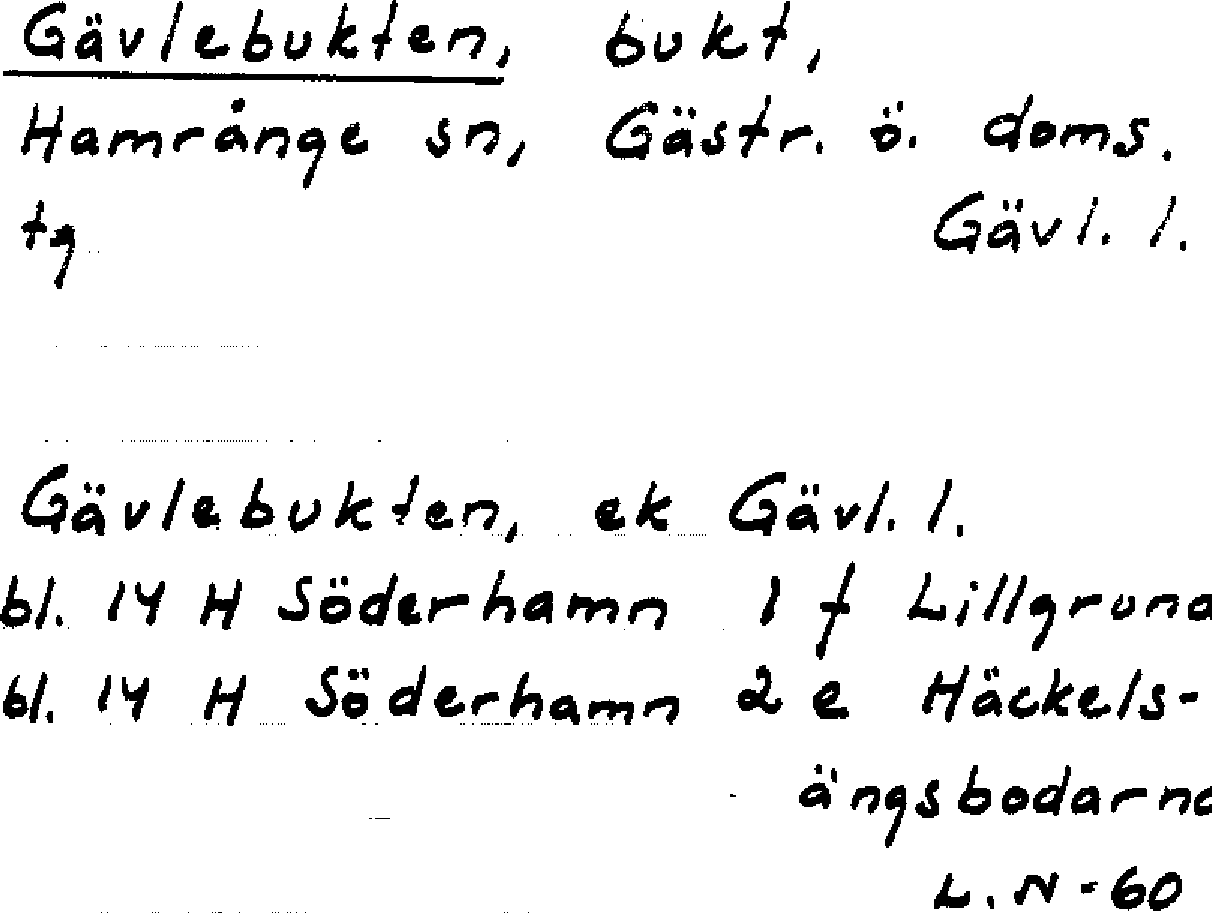 Gävlebukten, bukt,
Hamrånge sn, Gästr. ö. doms.
tg Gävl. l.
Gävlebukten, ek Gävl. l.
bl. 14 H Söderhamn 1 f Lillgrund
bl. 14 H Söderhamn 2 e Häckels-
ängsbodarna
L. N -60